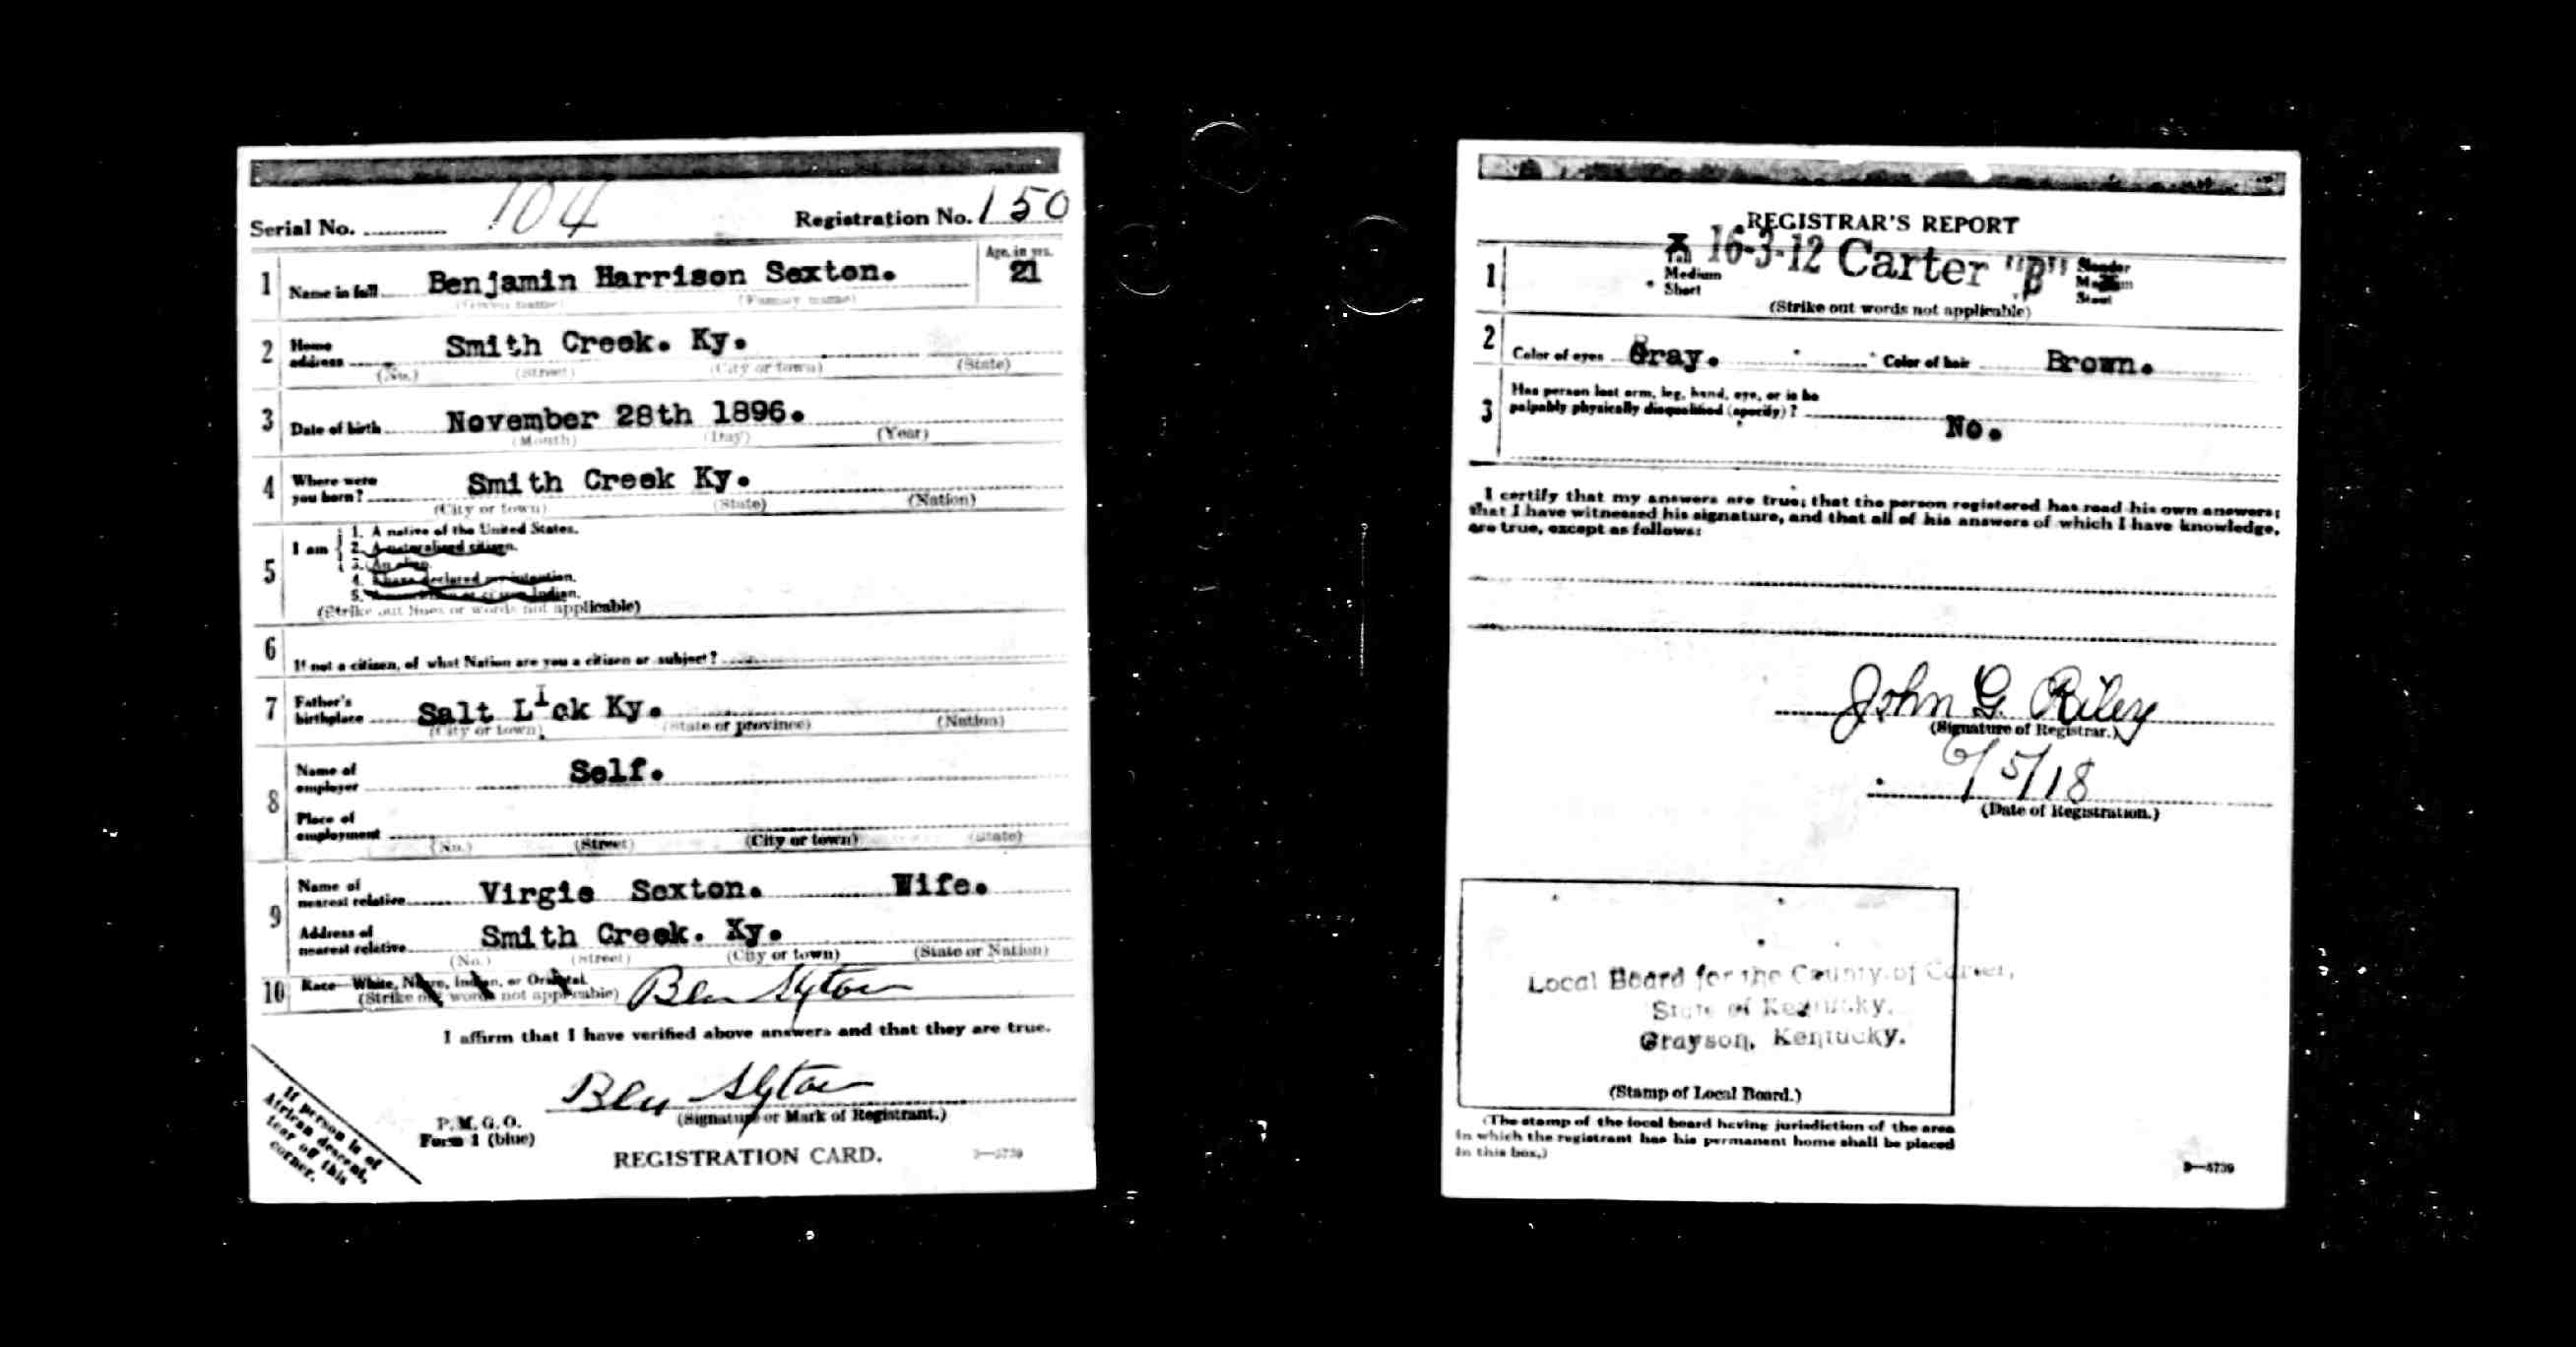 Serial No. 104 Registration No. 150
1 Name in full Benjamin Harrison Sexton. Age, in yrs. 21
(Given name) (Family name)
2 Home address Smith Creek. Ky.
(No.) (Street) (City or town) (State)
3 Date of birth November 28th 1896.
(Month) (Day) (Year)
4 Where were you born? Smith Creek Ky.
(City or town) (State) (Nation)
5 I am
1. A native of the United States.
2. A naturalized citizen.
3. An alien.
4. I have declared my intention.
5. Indian.
(Strike out lines or words not applicable)
6 If not a citizen, of what Nation are you a citizen or subject?
7 Father's birthplace Salt Lick Ky.
(City or town) (State or province) (Nation)
8 Name of employer Self.
Place of employment
(No.) (Street) (City or town) (State)
9 Name of nearest relative Virgie Sexton. Wife.
Address of nearest relative Smith Creek. Ky.
(No.) (Street) (City or town) (State or Nation)
10 Race—White, Negro, Indian, or Oriental.
(Strike out words not applicable) Ben Sexton
I affirm that I have verified above answers and that they are true.
Ben Sexton
(Signature or Mark of Registrant.)
P. M. G. O.
Form 1 (blue)
REGISTRATION CARD. 3—5739
If person is of
African descent,
tear off this
corner.
REGISTRAR'S REPORT
16-3-12 Carter "B"
1 Tall Slender
Medium Medium
Short Stout
(Strike out words not applicable)
2 Color of eyes Gray. Color of hair Brown.
3 Has person lost arm, leg, hand, eye, or is he
palpably physically disqualified (specify)? No.
I certify that my answers are true; that the person registered has read his own answers;
that I have witnessed his signature, and that all of his answers of which I have knowledge,
are true, except as follows:
John G. Riley
(Signature of Registrar.)
6/5/18
(Date of Registration.)
Local Board for the County of Carter,
State of Kentucky.
Grayson, Kentucky.
(Stamp of Local Board.)
(The stamp of the local board having jurisdiction of the area
in which the registrant has his permanent home shall be placed
in this box.)
3—5739